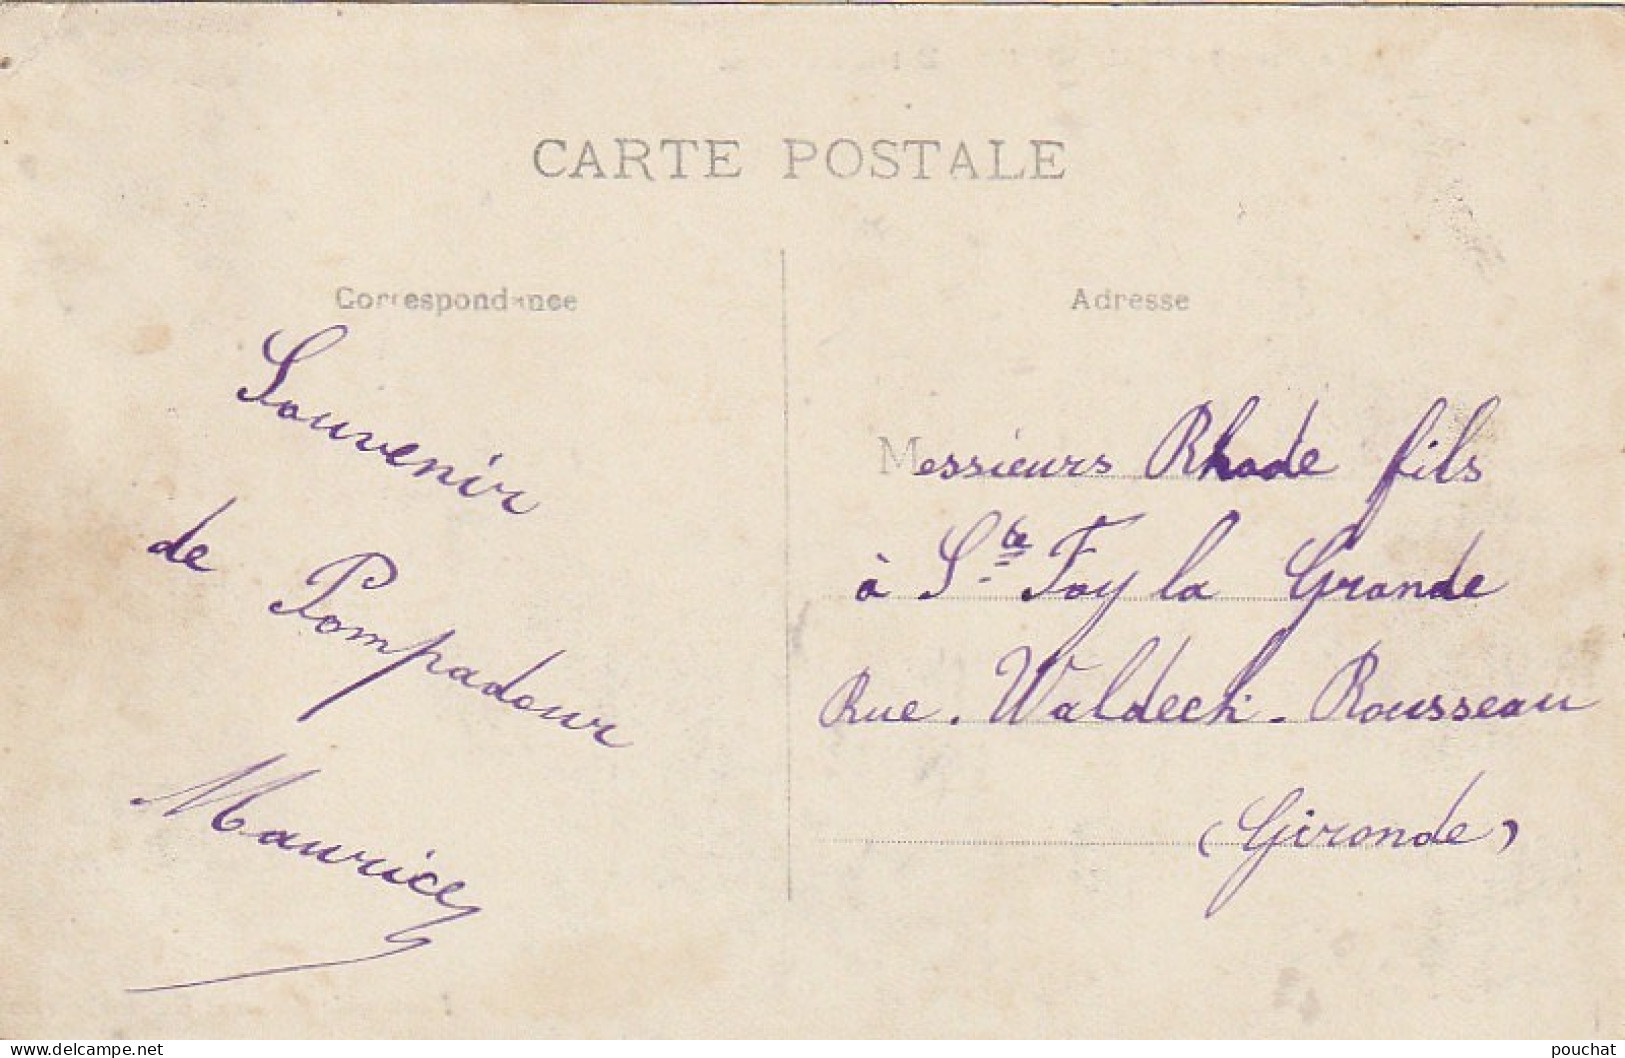 CARTE POSTALE
Correspondance
Souvenir
de Pompadour
Maurice
Adresse
Messieurs Rhode fils
à Ste Foy la Grande
Rue. Waldeck. Rousseau
(Gironde)
www.delcampe.net
pouchat